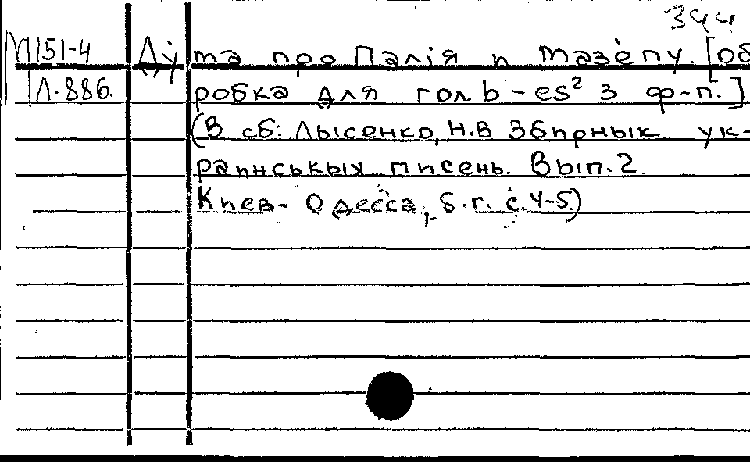 344
М151-4 Дума про Палія и Мазепу. [Об
Л-886. робка для гол b-es² з ф-п.]
(В сб: Лысенко, Н.В Збирнык ук-
раинськых писень. Вып.2
Киев- Одесса, б.г. с.4-5)